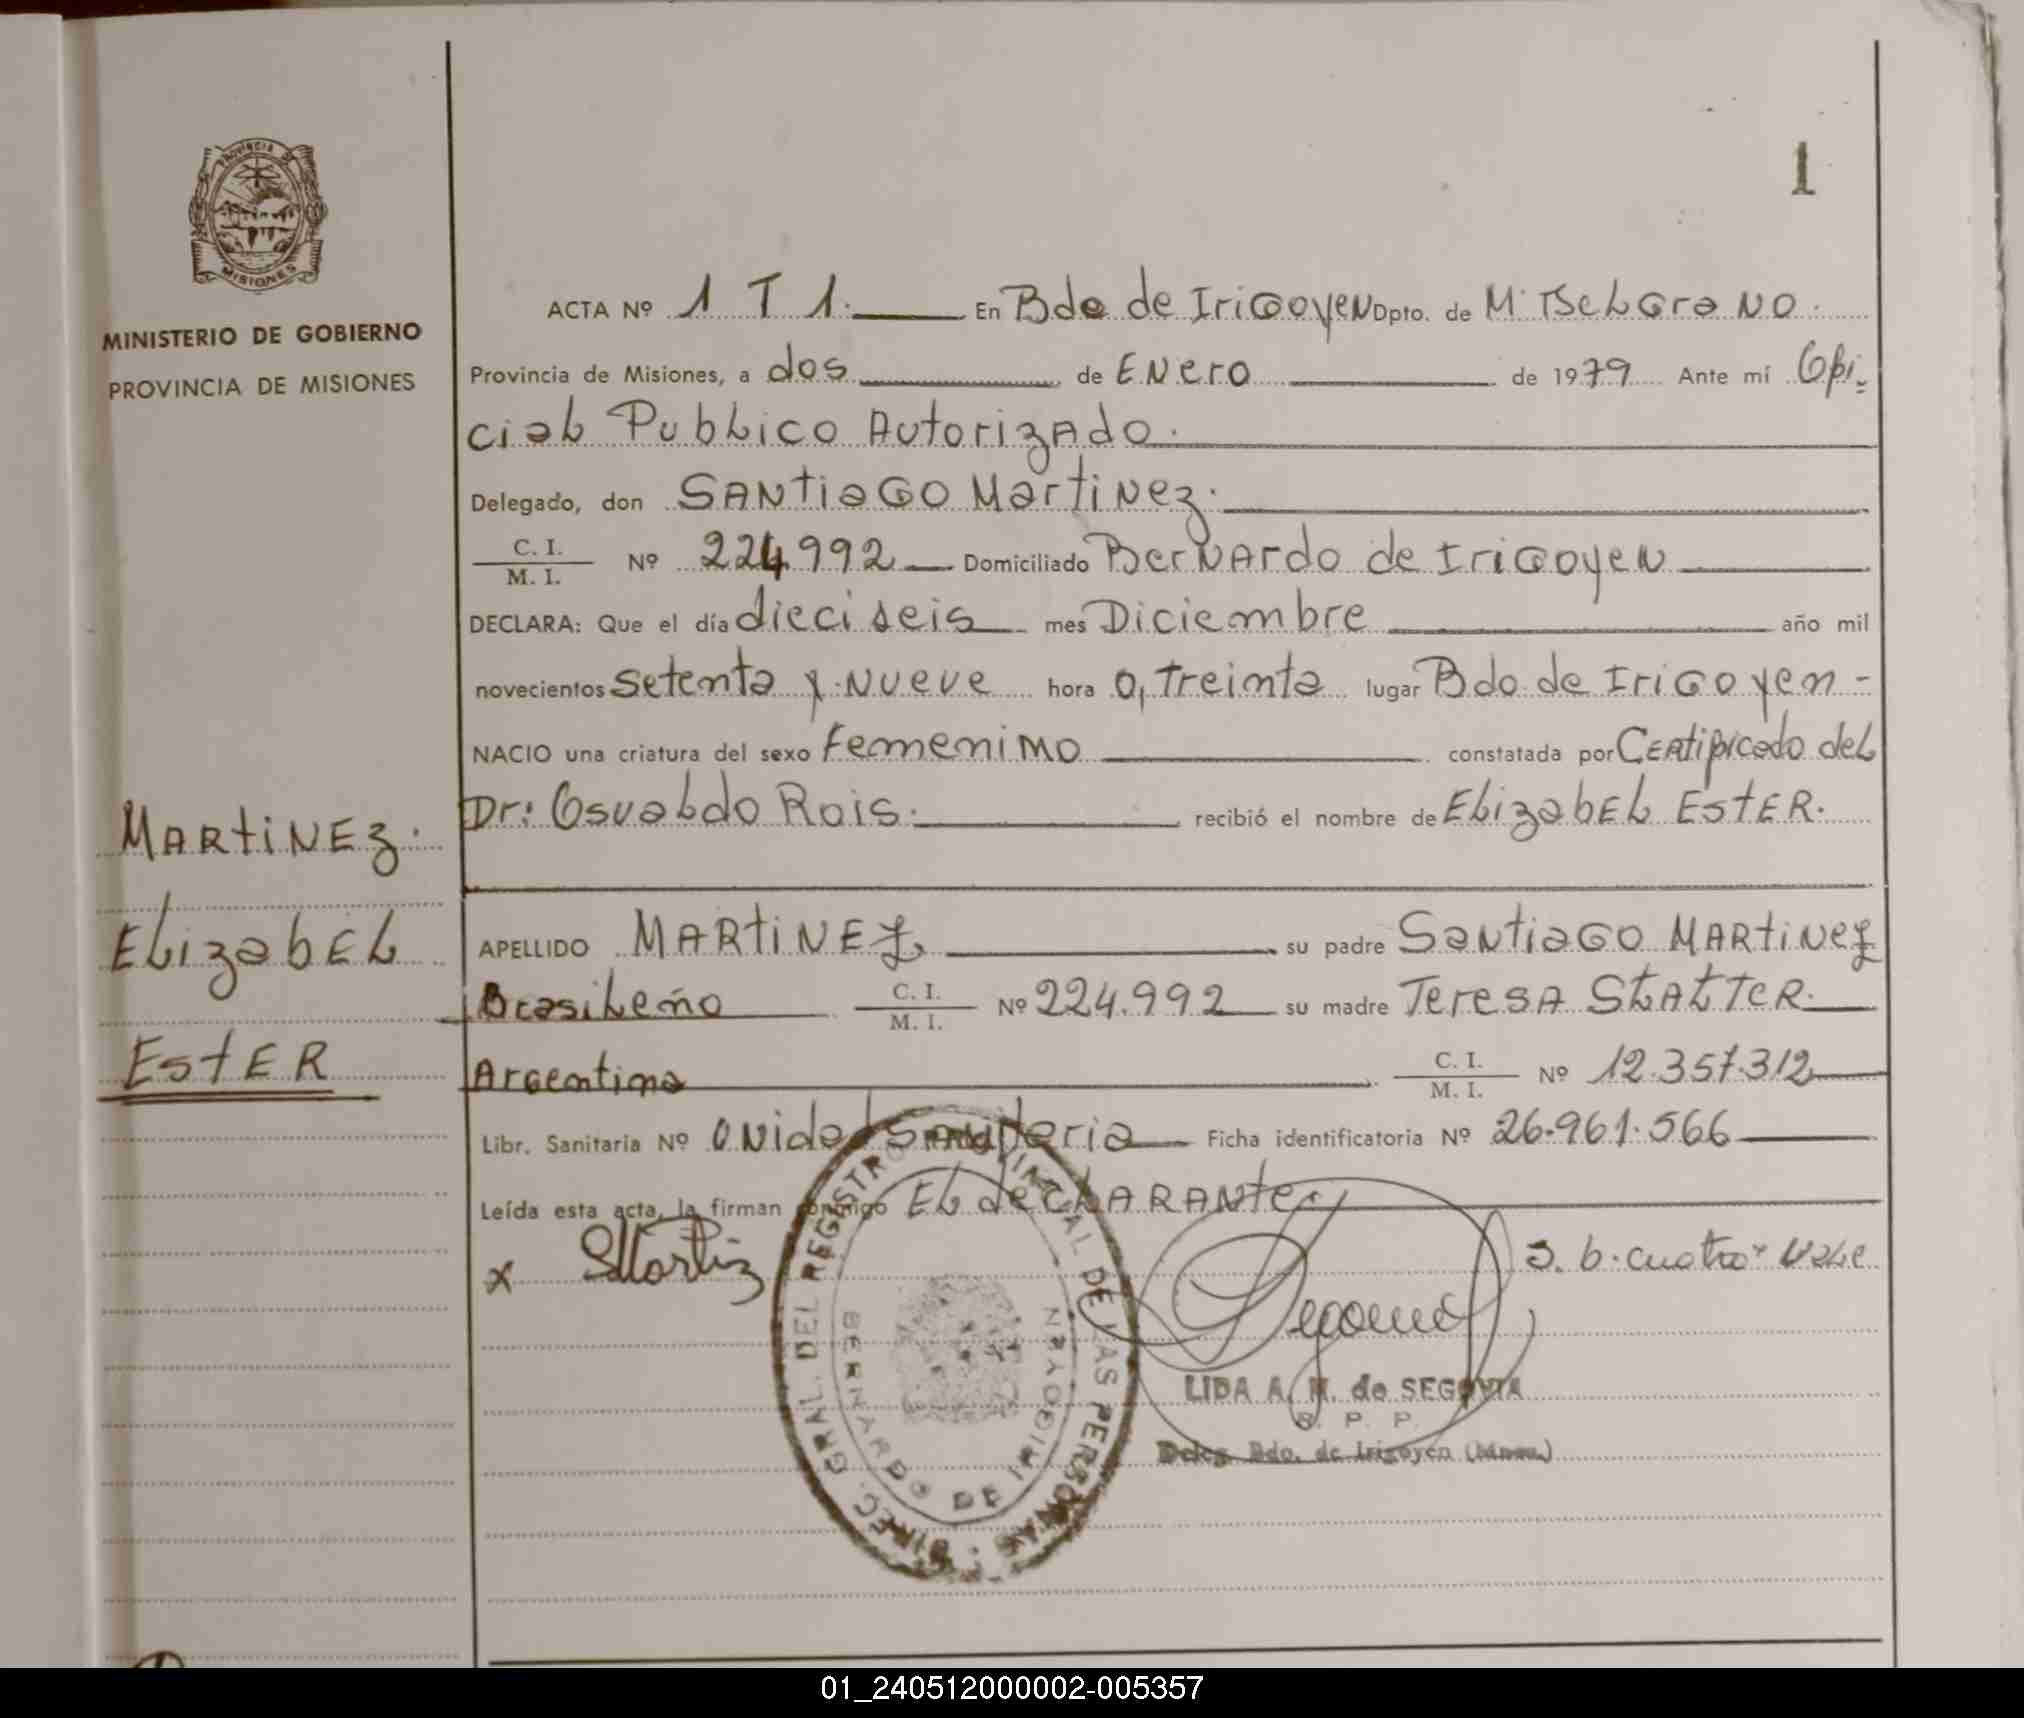 1
PROVINCIA DE
MISIONES
MINISTERIO DE GOBIERNO
PROVINCIA DE MISIONES
ACTA Nº 1 T 1. En Bdo de Irigoyen Dpto. de M. Belgrano.
Provincia de Misiones, a dos de Enero de 1979 Ante mí Ofi-
cial Publico Autorizado.
Delegado, don Santiago Martinez.
C. I.
M. I. Nº 224.992 Domiciliado Bernardo de Irigoyen
DECLARA: Que el día dieciseis mes Diciembre año mil
novecientos setenta y nueve hora 0, treinta lugar Bdo de Irigoyen -
NACIO una criatura del sexo Femenino constatada por Certificado del
Dr: Osvaldo Rois. recibió el nombre de Elizabel Ester.
Martinez.
Elizabel
Ester
APELLIDO Martinez, su padre Santiago Martinez
Brasileño C. I. M. I. Nº 224.992 su madre Teresa
Argentina C. I. M. I. Nº 12.357.312
Libr. Sanitaria Nº Unidad Sanitaria Ficha identificatoria Nº 26.961.566
Leída esta acta, la firman conmigo El declarante.
x SMartinz
S. b. cuatro. Vale
LIDA A. M. de SEGOVIA
S. P. P.
Deleg. Bdo. de Irigoyen (Mnes.)
DIREC. GRAL. DEL REGISTRO PROVINCIAL DE LAS PERSONAS
BERNARDO DE IRIGOYEN
01_240512000002-005357